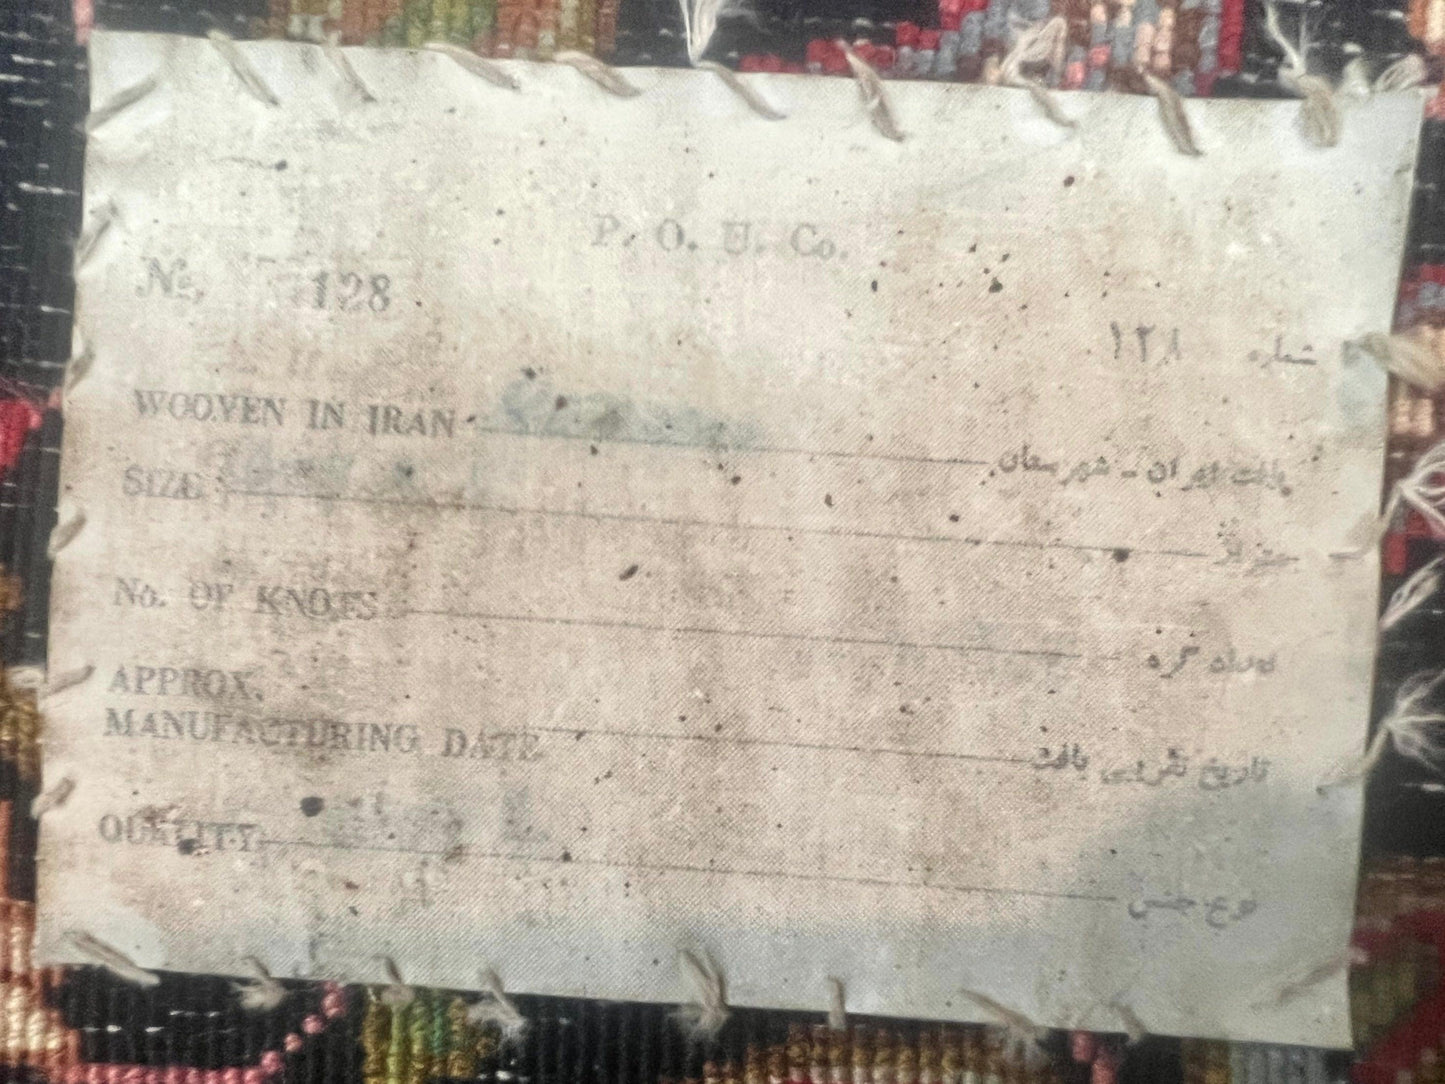 P. O. U. Co.
No. 128
شماره ۱۲۸
WOOVEN IN IRAN
بافت ایران - شهرستان
SIZE
متراژ
No. OF KNOTS
تعداد گره
APPROX.
MANUFACTURING DATE
تاریخ تقریبی بافت
QUALITY
نوع جنس